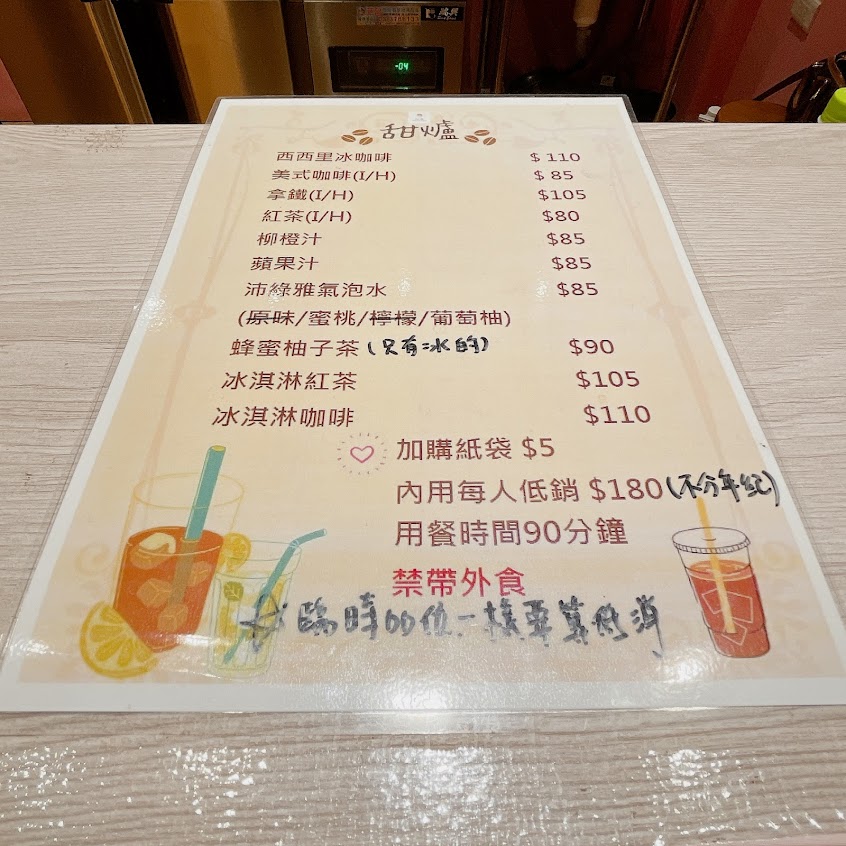 甜爐
西西里冰咖啡 $110
美式咖啡(I/H) $85
拿鐵(I/H) $105
紅茶(I/H) $80
柳橙汁 $85
蘋果汁 $85
沛綠雅氣泡水 $85
(原味/蜜桃/檸檬/葡萄柚)
蜂蜜柚子茶(只有冰的) $90
冰淇淋紅茶 $105
冰淇淋咖啡 $110
加購紙袋 $5
內用每人低銷 $180(不分年紀)
用餐時間90分鐘
禁帶外食
#臨時加位一樣要算低消